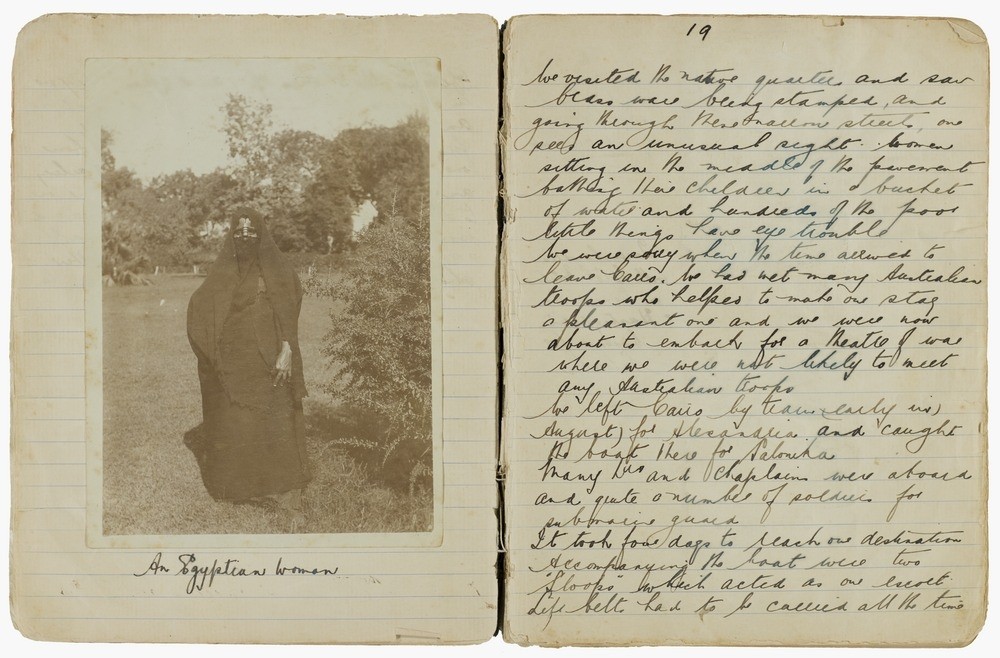 An Egyptian Woman
19
We visited the native quarter and saw
brass ware being stamped, and
going through these narrow streets, one
sees an unusual sight. Women
sitting in the middle of the pavement
bathing their children in a bucket
of water and hundreds of the poor
little things have eye trouble
We were sorry when the time arrived to
leave Cairo. We had met many Australian
troops who helped to make our stay
a pleasant one and we were now
about to embark for a theatre of war
where we were not likely to meet
any Australian troops
We left Cairo by train early in
August) for Alexandria and caught
the boat there for Salonika
Many and Chaplains were aboard
and quite a number of soldiers for
submarine guard
It took four days to reach our destination
Accompanying the boat were two
"Sloops" which acted as our escort.
Life belts had to be carried all the time